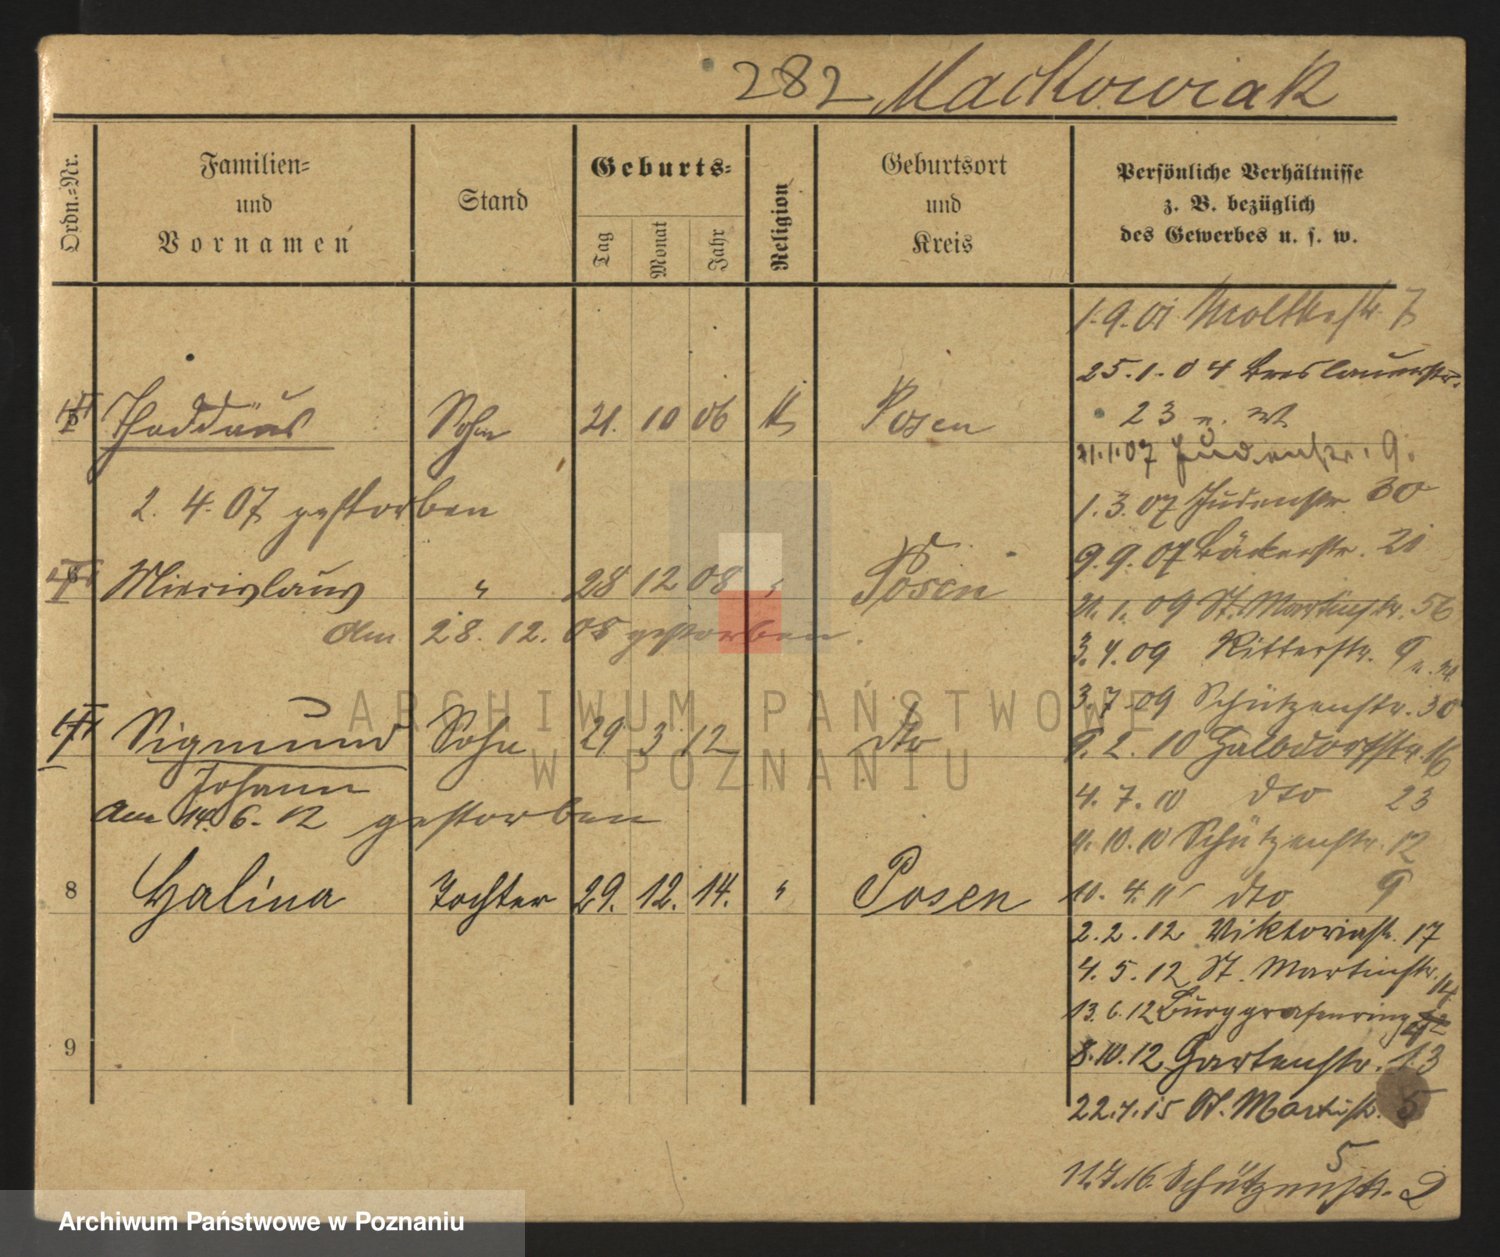 282 Mackowiak
Ordn.=Nr.
Familien=
und
Vornamen
Stand
Geburts=
Tag
Monat
Jahr
Religion
Geburtsort
und
Kreis
Persönliche Verhältnisse
z. B. bezüglich
des Gewerbes u. s. w.
1.9.01 Moltkestr. 7
25.1.04 Breslauerstr.
23
Thaddäus Sohn 21. 10 06 K Posen
21.1.07 Judenstr. 9.
2. 4. 07 gestorben
1.3.07 Judenstr. 30
9.9.07 Bäckerstr. 21
Mierislaus " 28 12 08 " Posen
21.1.09 St. Martinstr. 56
am 28. 12. 08 gestorben.
3.4.09 Ritterstr. 9
3.7.09 Schützenstr. 30
Sigmund Sohn 29 3 12 dto
9.2.10 Halbdorfstr. 16
Johann
4.7.10 dto 23
am 14. 6. 12 gestorben
4.10.10 Schützenstr. 12
8 Halina Tochter 29. 12. 14. " Posen
10.4.11 dto 9
2.2.12 Viktoriastr. 17
4.5.12 St. Martinstr.
13.6.12 Burggrafenring
9
8.10.12 Gartenstr. 13
22.4.15 St. Martinstr. 5
5
11.7.16. Schützenstr. 2
ARCHIWUM PAŃSTWOWE
W POZNANIU
Archiwum Państwowe w Poznaniu